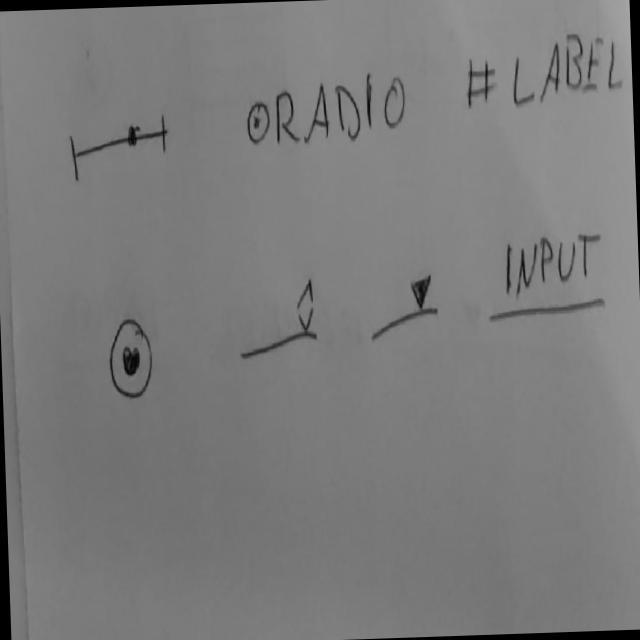 RADIO #LABEL
INPUT